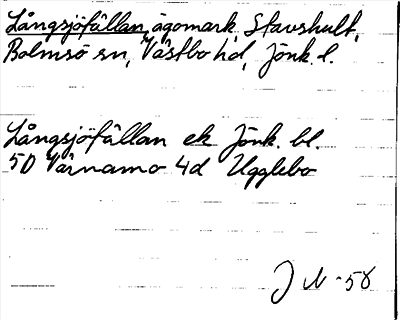 Långsjöfållan, ägomark, Stavshult,
Bolmsö sn, Västbo hd, Jönk. l.
Långsjöfållan ek Jönk. bl.
5D Värnamo 4d Ugglebo
J N -58